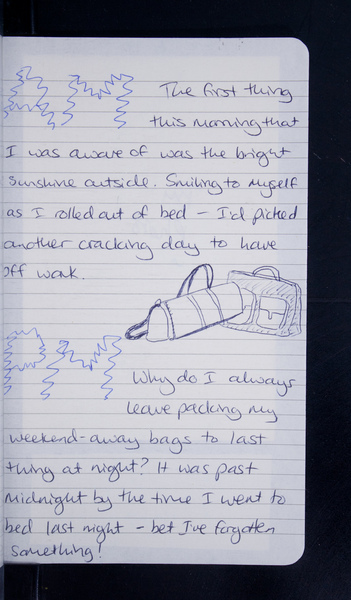 AM
The first thing
this morning that
I was aware of was the bright
sunshine outside. Smiling to myself
as I rolled out of bed – I'd picked
another cracking day to have
off work.
PM
Why do I always
leave packing my
weekend-away bags to last
thing at night? It was past
midnight by the time I went to
bed last night – bet I've forgotten
something!